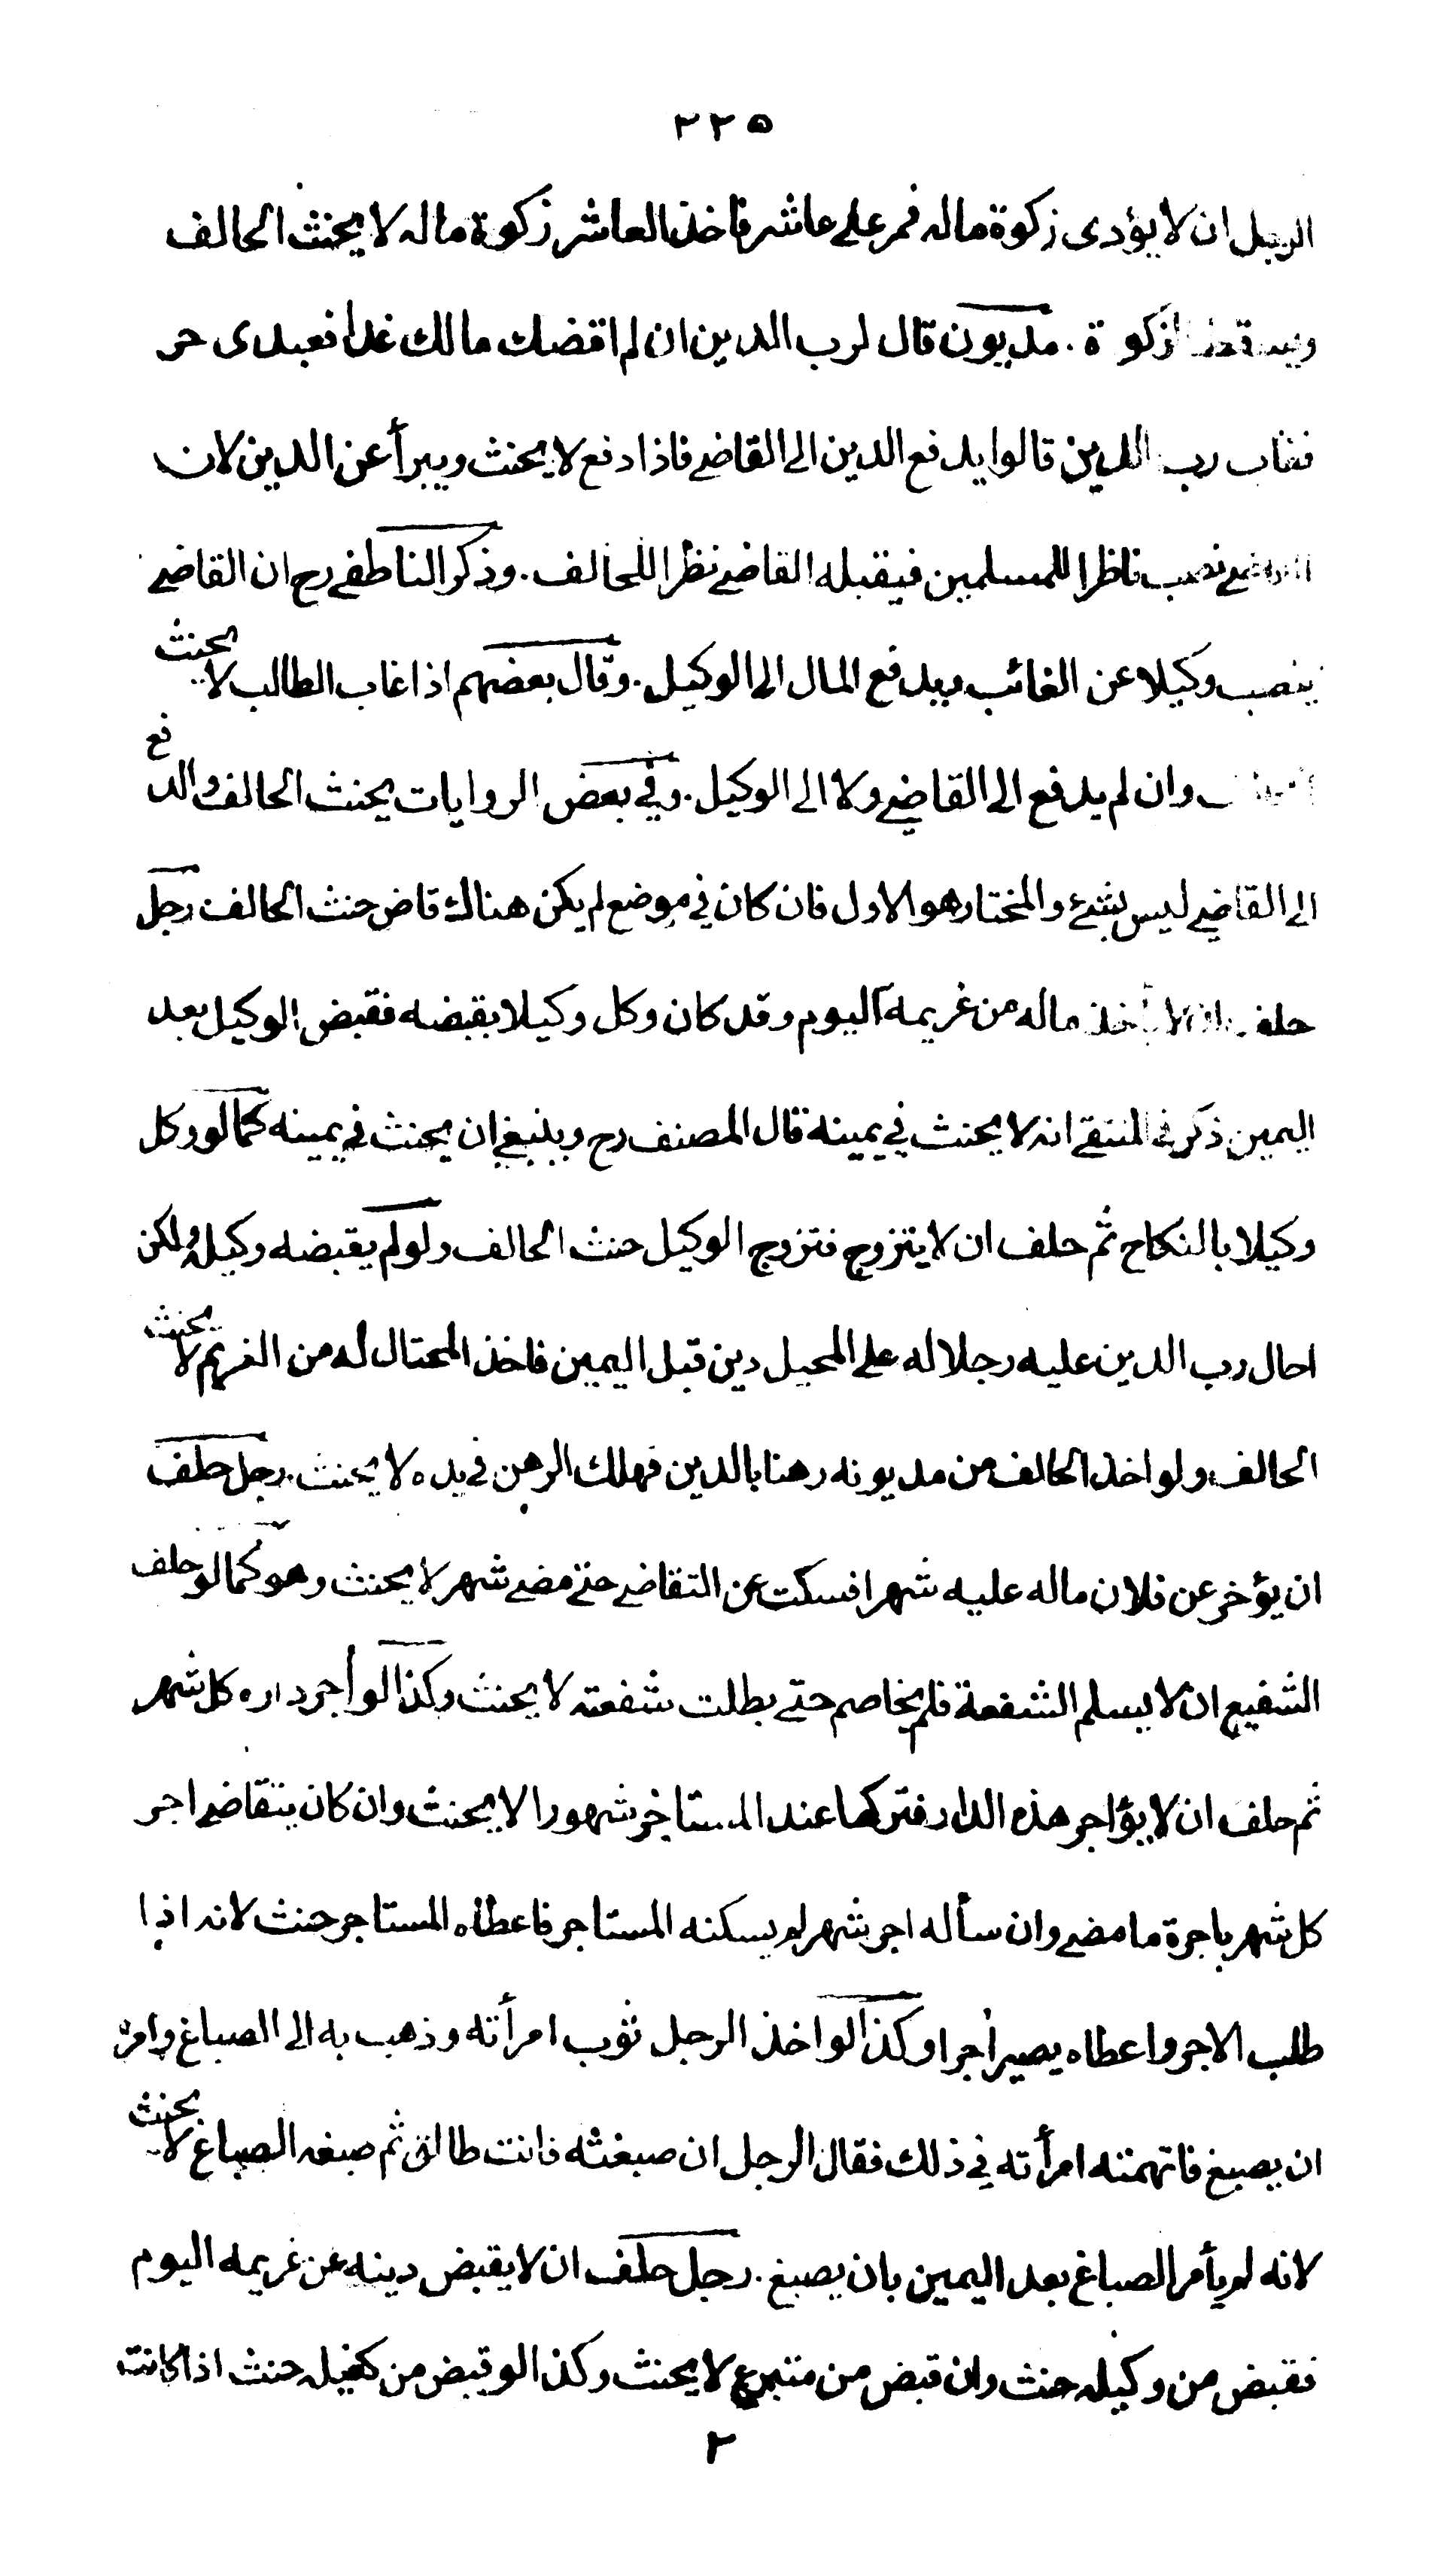 ٢٢٥
الرجل ان لا يؤدى زكوة ماله فمر على عاشر فاخذ العاشر زكوة ماله لا يحنث الحالف
ويسقط الزكوة . مديون قال لرب الدين ان لم اقضك مالك غدا فعبدى حر
فغاب رب الدين قالوا يدفع الدين الى القاضے فاذا دفع لا يحنث ويبرأ عن الدين لان
القاضے نصب ناظرا للمسلمين فيقبله القاضے نظرا للحالف . وذكر الناطفے رح ان القاضے
ينصب وكيلا عن الغائب ويدفع المال الى الوكيل . وقال بعضهم اذا غاب الطالب لا يحنث
وان لم يدفع الى القاضے ولا الى الوكيل . وفي بعض الروايات يحنث الحالف والدفع
الى القاضے ليس بشئ والمختار هو الاول فان كان في موضع لم يكن هناك قاض حنث الحالف رجل
حلف ان لا يأخذ ماله من غريمه اليوم وقد كان وكل وكيلا بقبضه فقبض الوكيل بعد
اليمين ذكر في المنتقے انه لا يحنث في يمينه قال المصنف رح وينبغے ان يحنث في يمينه كما لو وكل
وكيلا بالنكاح ثم حلف ان لا يتزوج فتزوج الوكيل حنث الحالف ولو لم يقبضه وكيله ولكن
احال رب الدين عليه رجلا له على المحيل دين قبل اليمين فاخذ المحتال له من الغريم لا يحنث
الحالف ولو اخذ الحالف من مديونه رهنا بالدين فهلك الرهن في يده لا يحنث . رجل حلف
ان يؤخر عن فلان ماله عليه شهرا فسكت عن التقاضے حتے مضے شهر لا يحنث وهو كما لو حلف
الشفيع ان لا يسلم الشفعة فلم يخاصم حتے بطلت شفعته لا يحنث وكذا لو أجر داره كل شهر
ثم حلف ان لا يؤاجر هذه الدار فتركها عند المستاجر شهورا لا يحنث وان كان يتقاضے اجر
كل شهر باجرة ما مضے وان سأله اجر شهر لم يسكنه المستاجر فاعطاه المستاجر حنث لانه اذا
طلب الاجر واعطاه يصير أجرا وكذا لو اخذ الرجل ثوب امرأته وذهب به الى الصباغ وامره
ان يصبغ فاتهمته امرأته في ذلك فقال الرجل ان صبغته فانت طالق ثم صبغه الصباغ لا يحنث
لانه لم يأمر الصباغ بعد اليمين بان يصبغ . رجل حلف ان لا يقبض دينه عن غريمه اليوم
فقبض من وكيله حنث وان قبض من متبرع لا يحنث وكذا لو قبض من كفيله حنث اذا كانت
٢